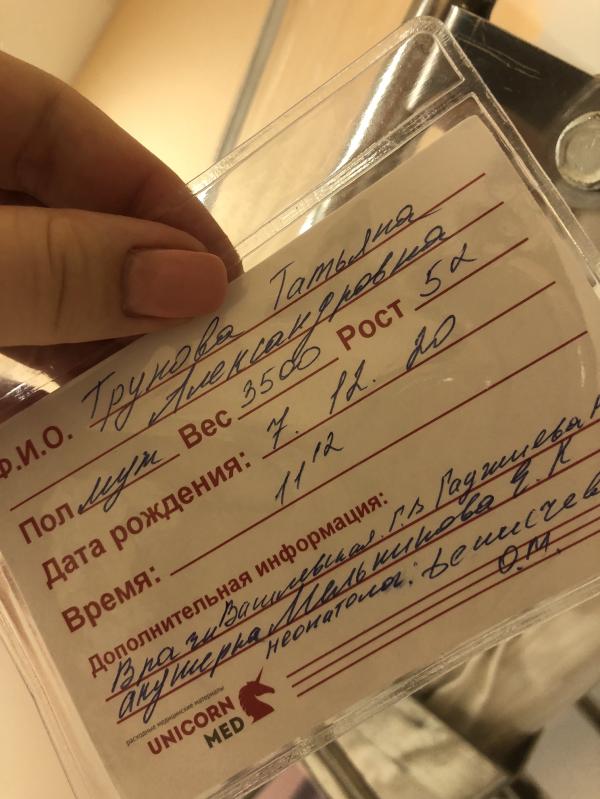 Ф.И.О. Трунова Татьяна
Александровна
Пол муж Вес 3500 Рост 52
Дата рождения: 7. 12. 20
Время: 11 12
Дополнительная информация:
Врачи Гаджиева
акушерка Мельникова
неонатолог:
О.М.
расходные медицинские материалы
UNICORN
MED